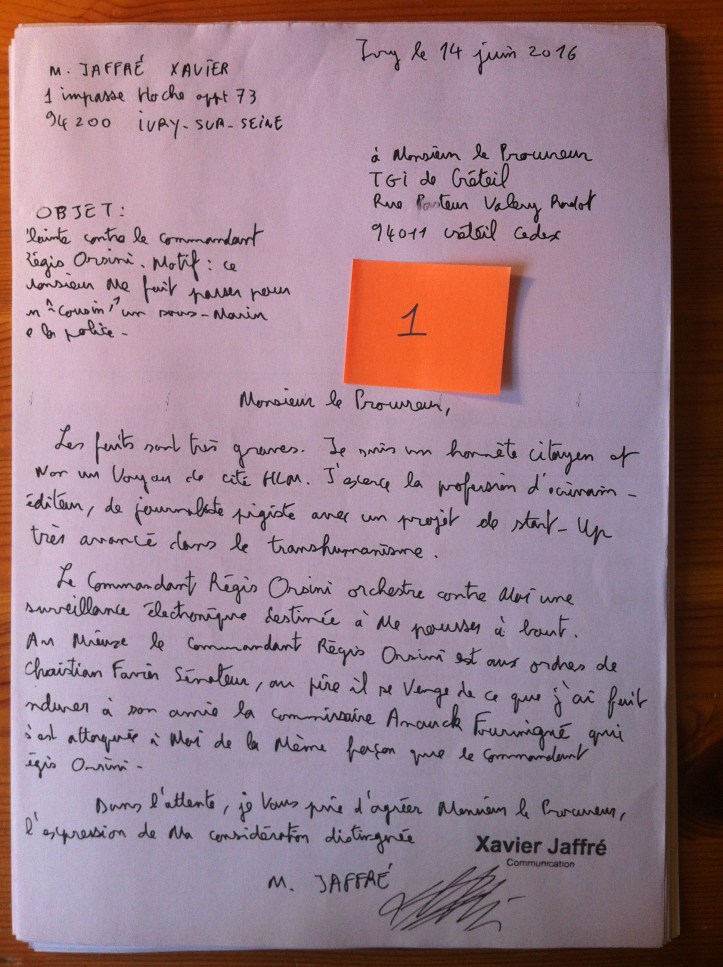 M. JAFFRÉ XAVIER
1 impasse Hoche appt 73
94200 IVRY-SUR-SEINE
Ivry le 14 juin 2016
à Monsieur le Procureur
TGI de Créteil
Rue Pasteur Valery Radot
94011 Créteil Cedex
OBJET:
lainte contre le commandant
Régis Orsini. Motif: ce
Monsieur Me fait passer pour
un "Cousin", un sous-Marin
e la police-
1
Monsieur le Procureur,
Les faits sont très graves. Je suis un honnête citoyen et
Non un Voyou de cité HLM. J'exerce la profession d'écrivain-
éditeur, de journaliste pigiste avec un projet de start-Up
très avancé dans le transhumanisme.
Le Commandant Régis Orsini orchestre contre Moi une
surveillance électronique destinée à Me pousser à bout.
Au Mieux le Commandant Régis Orsini est aux ordres de
Christian Favier Sénateur, au pire il se Venge de ce que j'ai fait
ndurer à son amie la commissaire Anouck Fourmigné qui
s'est attaquée à Moi de la Même façon que le Commandant
égis Orsini-
Dans l'attente, je Vous prie d'agréer Monsieur le Procureur,
l'expression de Ma considération distinguée
Xavier Jaffré
Communication
M. JAFFRÉ